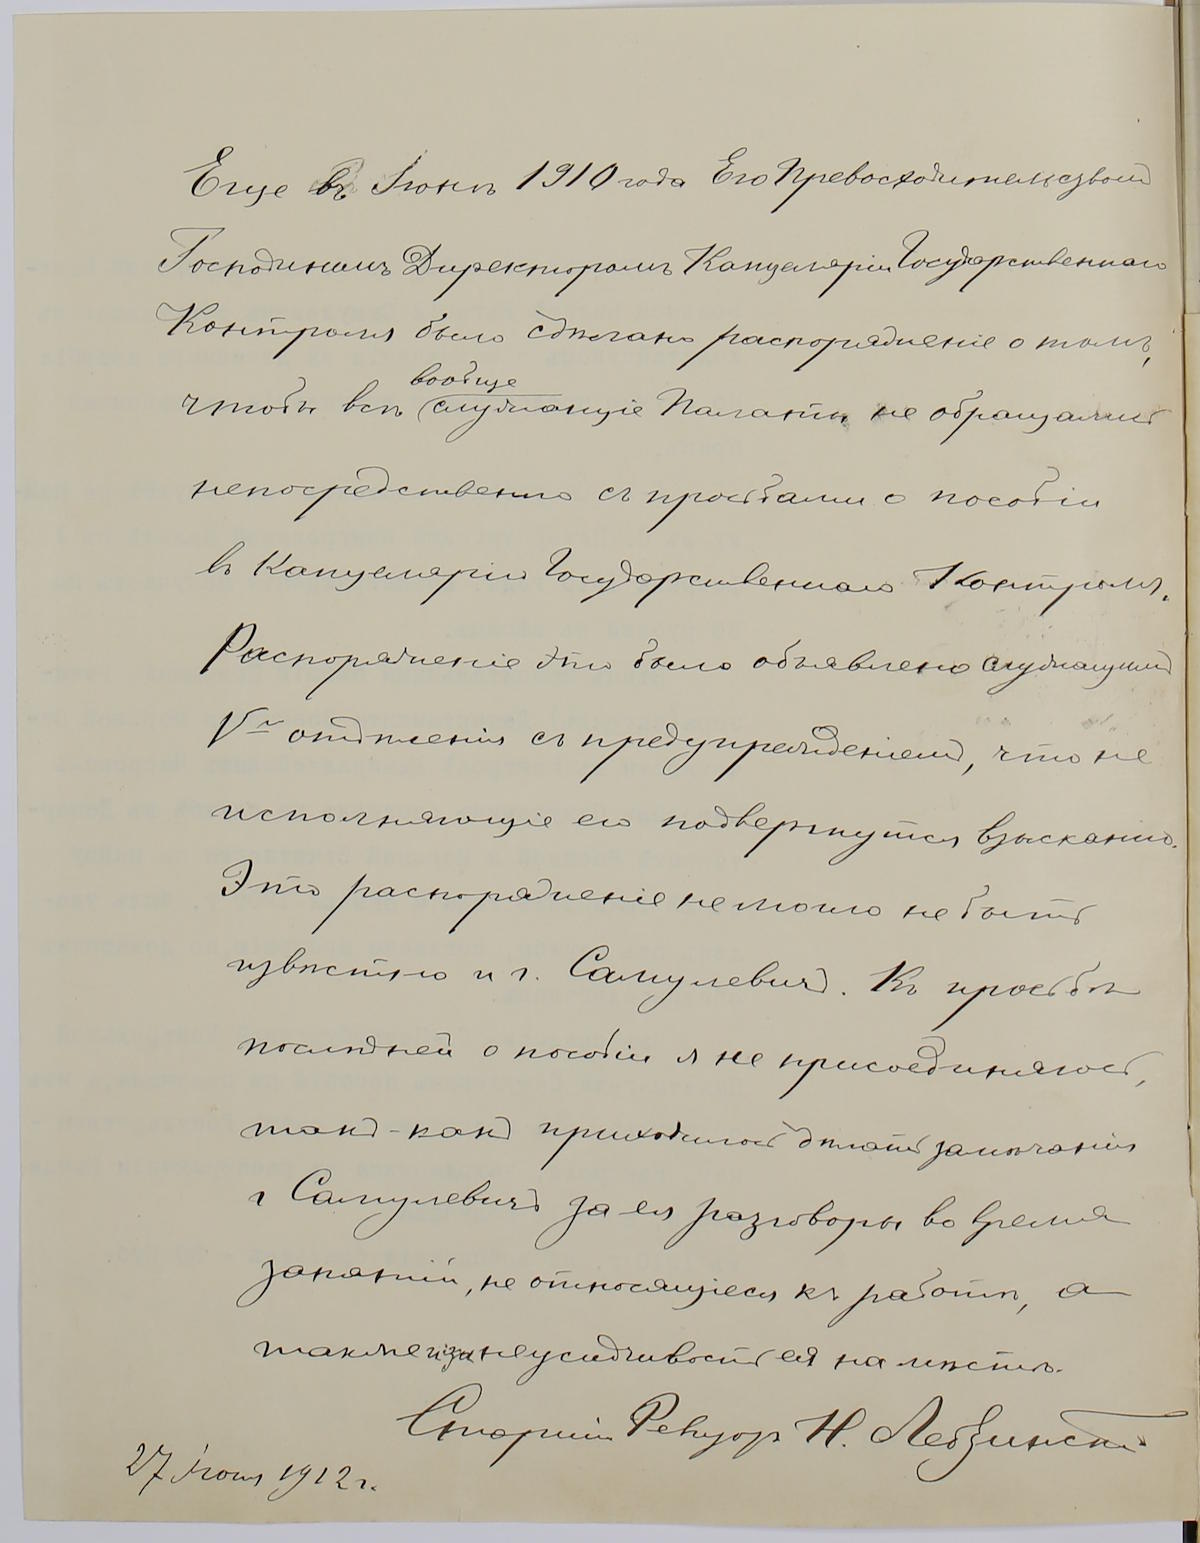 Еще въ Іюнѣ 1910 года Его Превосходительствомъ
Господиномъ Директоромъ Канцеляріи Государственнаго
Контроля было сдѣлано распоряженіе о томъ,
чтобы всѣ вообще служащіе Палаты не обращались
непосредственно съ просьбами о пособіи
въ Канцелярію Государственнаго Контроля.
Распоряженіе это было объявлено служащимъ
V-го отдѣленія съ предупрежденіемъ, что не
исполняющіе его подвергнутся взысканію.
Это распоряженіе не могло не быть
извѣстно и г. Самулевичъ. Къ просьбѣ
послѣдней о пособіи я не присоединяюсь,
такъ-какъ приходилось дѣлать замѣчанія
г Самулевичъ за ея разговоры во время
занятій, не относящіеся къ работѣ, а
также и за неусидчивость ея на мѣстѣ.
Старшій Ревизоръ Н.
27 Іюня 1912 г.